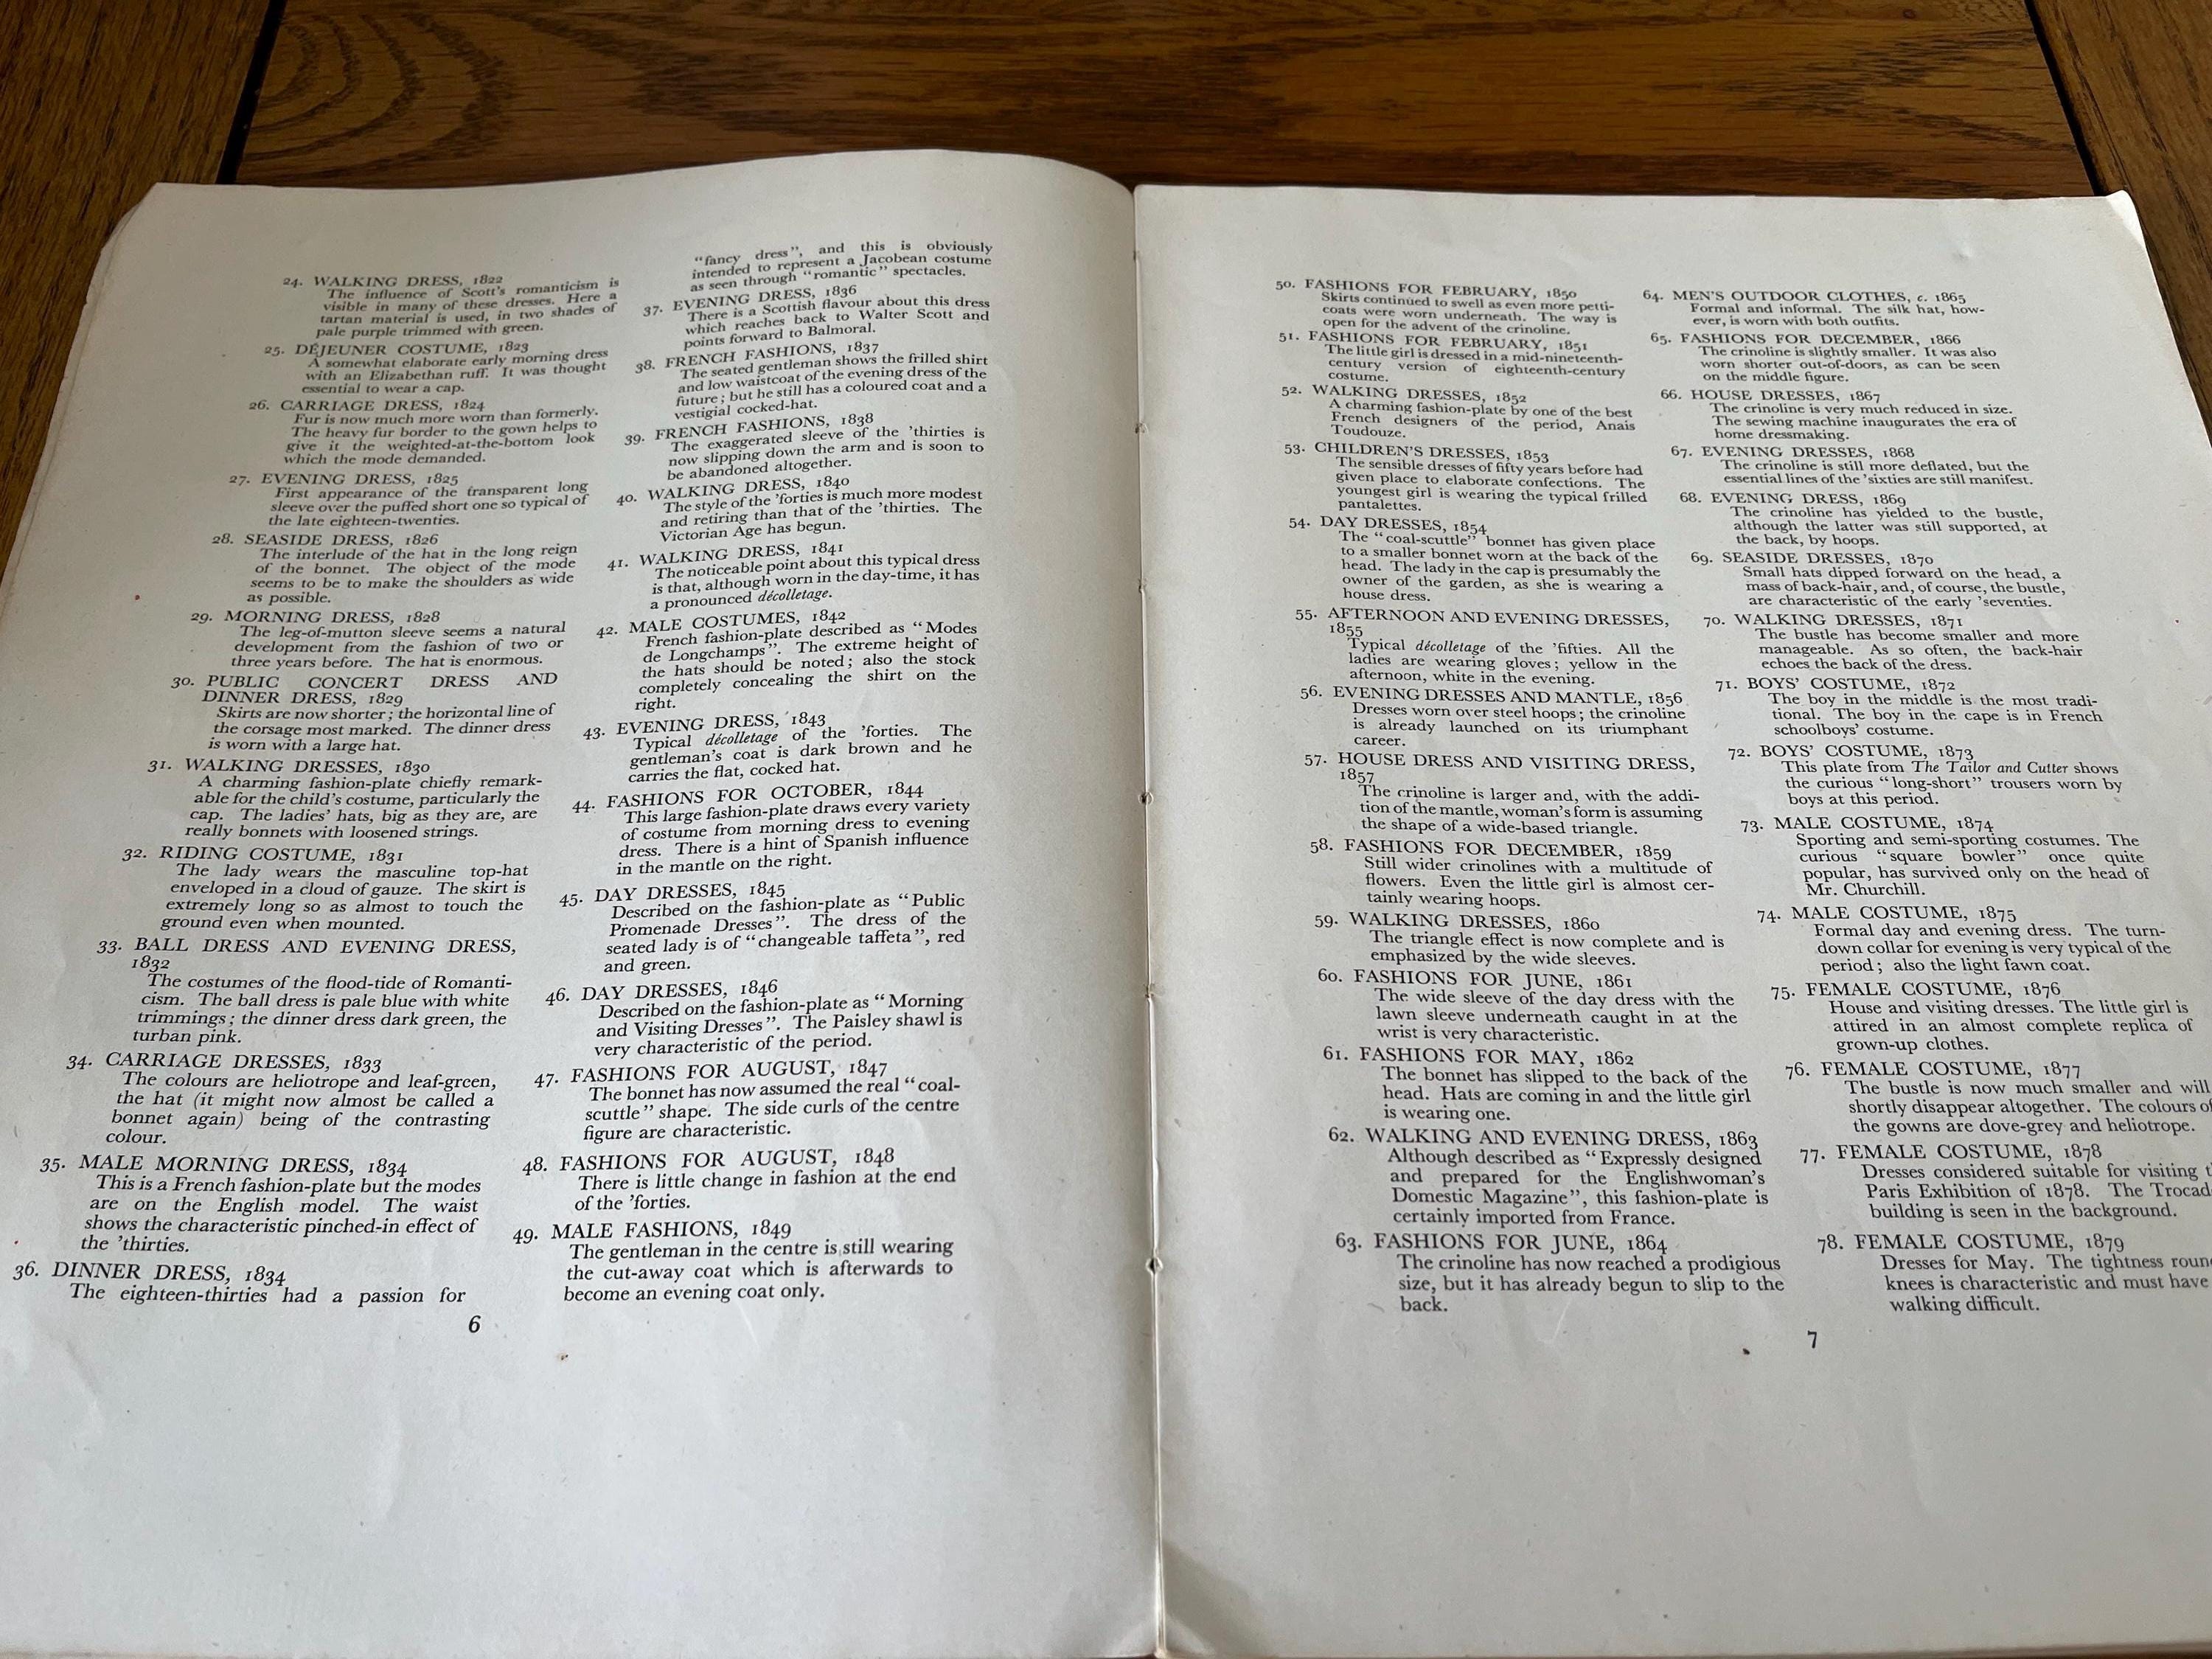 24. WALKING DRESS, 1822
The influence of Scott's romanticism is
visible in many of these dresses. Here a
tartan material is used, in two shades of
pale purple trimmed with green.
25. DÉJEUNER COSTUME, 1823
A somewhat elaborate early morning dress
with an Elizabethan ruff. It was thought
essential to wear a cap.
26. CARRIAGE DRESS, 1824
Fur is now much more worn than formerly.
The heavy fur border to the gown helps to
give it the weighted-at-the-bottom look
which the mode demanded.
27. EVENING DRESS, 1825
First appearance of the transparent long
sleeve over the puffed short one so typical of
the late eighteen-twenties.
28. SEASIDE DRESS, 1826
The interlude of the hat in the long reign
of the bonnet. The object of the mode
seems to be to make the shoulders as wide
as possible.
29. MORNING DRESS, 1828
The leg-of-mutton sleeve seems a natural
development from the fashion of two or
three years before. The hat is enormous.
30. PUBLIC CONCERT DRESS AND
DINNER DRESS, 1829
Skirts are now shorter; the horizontal line of
the corsage most marked. The dinner dress
is worn with a large hat.
31. WALKING DRESSES, 1830
A charming fashion-plate chiefly remark-
able for the child's costume, particularly the
cap. The ladies' hats, big as they are, are
really bonnets with loosened strings.
32. RIDING COSTUME, 1831
The lady wears the masculine top-hat
enveloped in a cloud of gauze. The skirt is
extremely long so as almost to touch the
ground even when mounted.
33. BALL DRESS AND EVENING DRESS,
1832
The costumes of the flood-tide of Romanti-
cism. The ball dress is pale blue with white
trimmings; the dinner dress dark green, the
turban pink.
34. CARRIAGE DRESSES, 1833
The colours are heliotrope and leaf-green,
the hat (it might now almost be called a
bonnet again) being of the contrasting
colour.
35. MALE MORNING DRESS, 1834
This is a French fashion-plate but the modes
are on the English model. The waist
shows the characteristic pinched-in effect of
the 'thirties.
36. DINNER DRESS, 1834
The eighteen-thirties had a passion for
"fancy dress", and this is obviously
intended to represent a Jacobean costume
as seen through "romantic" spectacles.
37. EVENING DRESS, 1836
There is a Scottish flavour about this dress
which reaches back to Walter Scott and
points forward to Balmoral.
38. FRENCH FASHIONS, 1837
The seated gentleman shows the frilled shirt
and low waistcoat of the evening dress of the
future; but he still has a coloured coat and a
vestigial cocked-hat.
39. FRENCH FASHIONS, 1838
The exaggerated sleeve of the 'thirties is
now slipping down the arm and is soon to
be abandoned altogether.
40. WALKING DRESS, 1840
The style of the 'forties is much more modest
and retiring than that of the 'thirties. The
Victorian Age has begun.
41. WALKING DRESS, 1841
The noticeable point about this typical dress
is that, although worn in the day-time, it has
a pronounced décolletage.
42. MALE COSTUMES, 1842
French fashion-plate described as "Modes
de Longchamps". The extreme height of
the hats should be noted; also the stock
completely concealing the shirt on the
right.
43. EVENING DRESS, 1843
Typical décolletage of the 'forties. The
gentleman's coat is dark brown and he
carries the flat, cocked hat.
44. FASHIONS FOR OCTOBER, 1844
This large fashion-plate draws every variety
of costume from morning dress to evening
dress. There is a hint of Spanish influence
in the mantle on the right.
45. DAY DRESSES, 1845
Described on the fashion-plate as "Public
Promenade Dresses". The dress of the
seated lady is of "changeable taffeta", red
and green.
46. DAY DRESSES, 1846
Described on the fashion-plate as "Morning
and Visiting Dresses". The Paisley shawl is
very characteristic of the period.
47. FASHIONS FOR AUGUST, 1847
The bonnet has now assumed the real "coal-
scuttle" shape. The side curls of the centre
figure are characteristic.
48. FASHIONS FOR AUGUST, 1848
There is little change in fashion at the end
of the 'forties.
49. MALE FASHIONS, 1849
The gentleman in the centre is still wearing
the cut-away coat which is afterwards to
become an evening coat only.
6
50. FASHIONS FOR FEBRUARY, 1850
Skirts continued to swell as even more petti-
coats were worn underneath. The way is
open for the advent of the crinoline.
51. FASHIONS FOR FEBRUARY, 1851
The little girl is dressed in a mid-nineteenth-
century version of eighteenth-century
costume.
52. WALKING DRESSES, 1852
A charming fashion-plate by one of the best
French designers of the period, Anais
Toudouze.
53. CHILDREN'S DRESSES, 1853
The sensible dresses of fifty years before had
given place to elaborate confections. The
youngest girl is wearing the typical frilled
pantalettes.
54. DAY DRESSES, 1854
The "coal-scuttle" bonnet has given place
to a smaller bonnet worn at the back of the
head. The lady in the cap is presumably the
owner of the garden, as she is wearing a
house dress.
55. AFTERNOON AND EVENING DRESSES,
1855
Typical décolletage of the 'fifties. All the
ladies are wearing gloves; yellow in the
afternoon, white in the evening.
56. EVENING DRESSES AND MANTLE, 1856
Dresses worn over steel hoops; the crinoline
is already launched on its triumphant
career.
57. HOUSE DRESS AND VISITING DRESS,
1857
The crinoline is larger and, with the addi-
tion of the mantle, woman's form is assuming
the shape of a wide-based triangle.
58. FASHIONS FOR DECEMBER, 1859
Still wider crinolines with a multitude of
flowers. Even the little girl is almost cer-
tainly wearing hoops.
59. WALKING DRESSES, 1860
The triangle effect is now complete and is
emphasized by the wide sleeves.
60. FASHIONS FOR JUNE, 1861
The wide sleeve of the day dress with the
lawn sleeve underneath caught in at the
wrist is very characteristic.
61. FASHIONS FOR MAY, 1862
The bonnet has slipped to the back of the
head. Hats are coming in and the little girl
is wearing one.
62. WALKING AND EVENING DRESS, 1863
Although described as "Expressly designed
and prepared for the Englishwoman's
Domestic Magazine", this fashion-plate is
certainly imported from France.
63. FASHIONS FOR JUNE, 1864
The crinoline has now reached a prodigious
size, but it has already begun to slip to the
back.
64. MEN'S OUTDOOR CLOTHES, c. 1865
Formal and informal. The silk hat, how-
ever, is worn with both outfits.
65. FASHIONS FOR DECEMBER, 1866
The crinoline is slightly smaller. It was also
worn shorter out-of-doors, as can be seen
on the middle figure.
66. HOUSE DRESSES, 1867
The crinoline is very much reduced in size.
The sewing machine inaugurates the era of
home dressmaking.
67. EVENING DRESSES, 1868
The crinoline is still more deflated, but the
essential lines of the 'sixties are still manifest.
68. EVENING DRESS, 1869
The crinoline has yielded to the bustle,
although the latter was still supported, at
the back, by hoops.
69. SEASIDE DRESSES, 1870
Small hats dipped forward on the head, a
mass of back-hair, and, of course, the bustle,
are characteristic of the early 'seventies.
70. WALKING DRESSES, 1871
The bustle has become smaller and more
manageable. As so often, the back-hair
echoes the back of the dress.
71. BOYS' COSTUME, 1872
The boy in the middle is the most tradi-
tional. The boy in the cape is in French
schoolboys' costume.
72. BOYS' COSTUME, 1873
This plate from The Tailor and Cutter shows
the curious "long-short" trousers worn by
boys at this period.
73. MALE COSTUME, 1874
Sporting and semi-sporting costumes. The
curious "square bowler" once quite
popular, has survived only on the head of
Mr. Churchill.
74. MALE COSTUME, 1875
Formal day and evening dress. The turn-
down collar for evening is very typical of the
period; also the light fawn coat.
75. FEMALE COSTUME, 1876
House and visiting dresses. The little girl is
attired in an almost complete replica of
grown-up clothes.
76. FEMALE COSTUME, 1877
The bustle is now much smaller and will
shortly disappear altogether. The colours of
the gowns are dove-grey and heliotrope.
77. FEMALE COSTUME, 1878
Dresses considered suitable for visiting t
Paris Exhibition of 1878. The Trocad
building is seen in the background.
78. FEMALE COSTUME, 1879
Dresses for May. The tightness roun
knees is characteristic and must have
walking difficult.
7